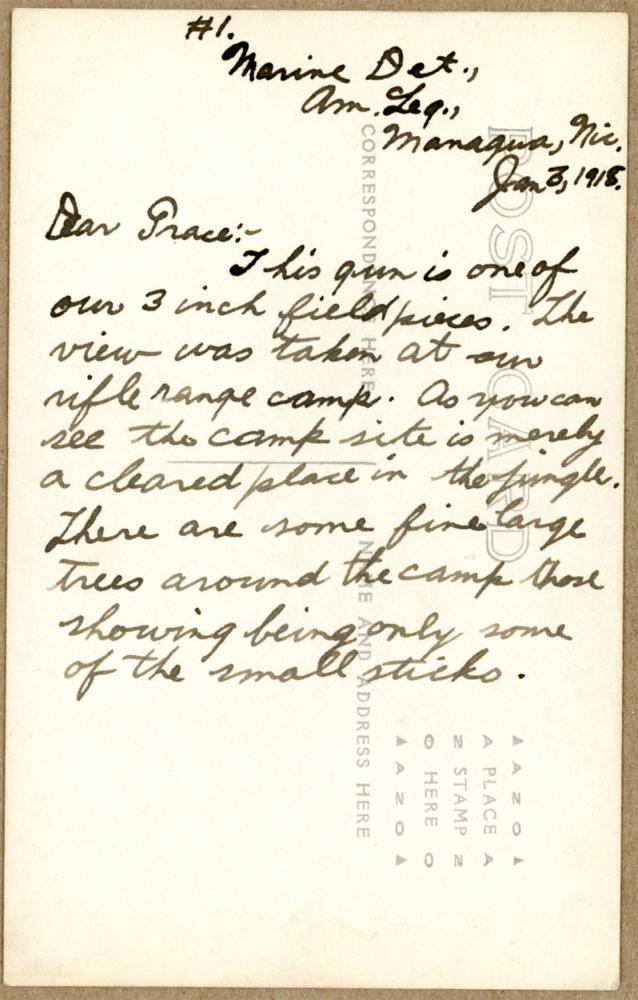 #1.
Marine Det.,
Am. Leg.,
Managua, Nic.
Jan 3, 1918.
Dear Grace:-
This gun is one of
our 3 inch field pieces. The
view was taken at our
rifle range camp. As you can
see the camp site is merely
a cleared place in the jungle.
There are some fine large
trees around the camp those
showing being only some
of the small sticks.
POST CARD
CORRESPONDENCE HERE
NAME AND ADDRESS HERE
AZO
PLACE
STAMP
HERE
AZO